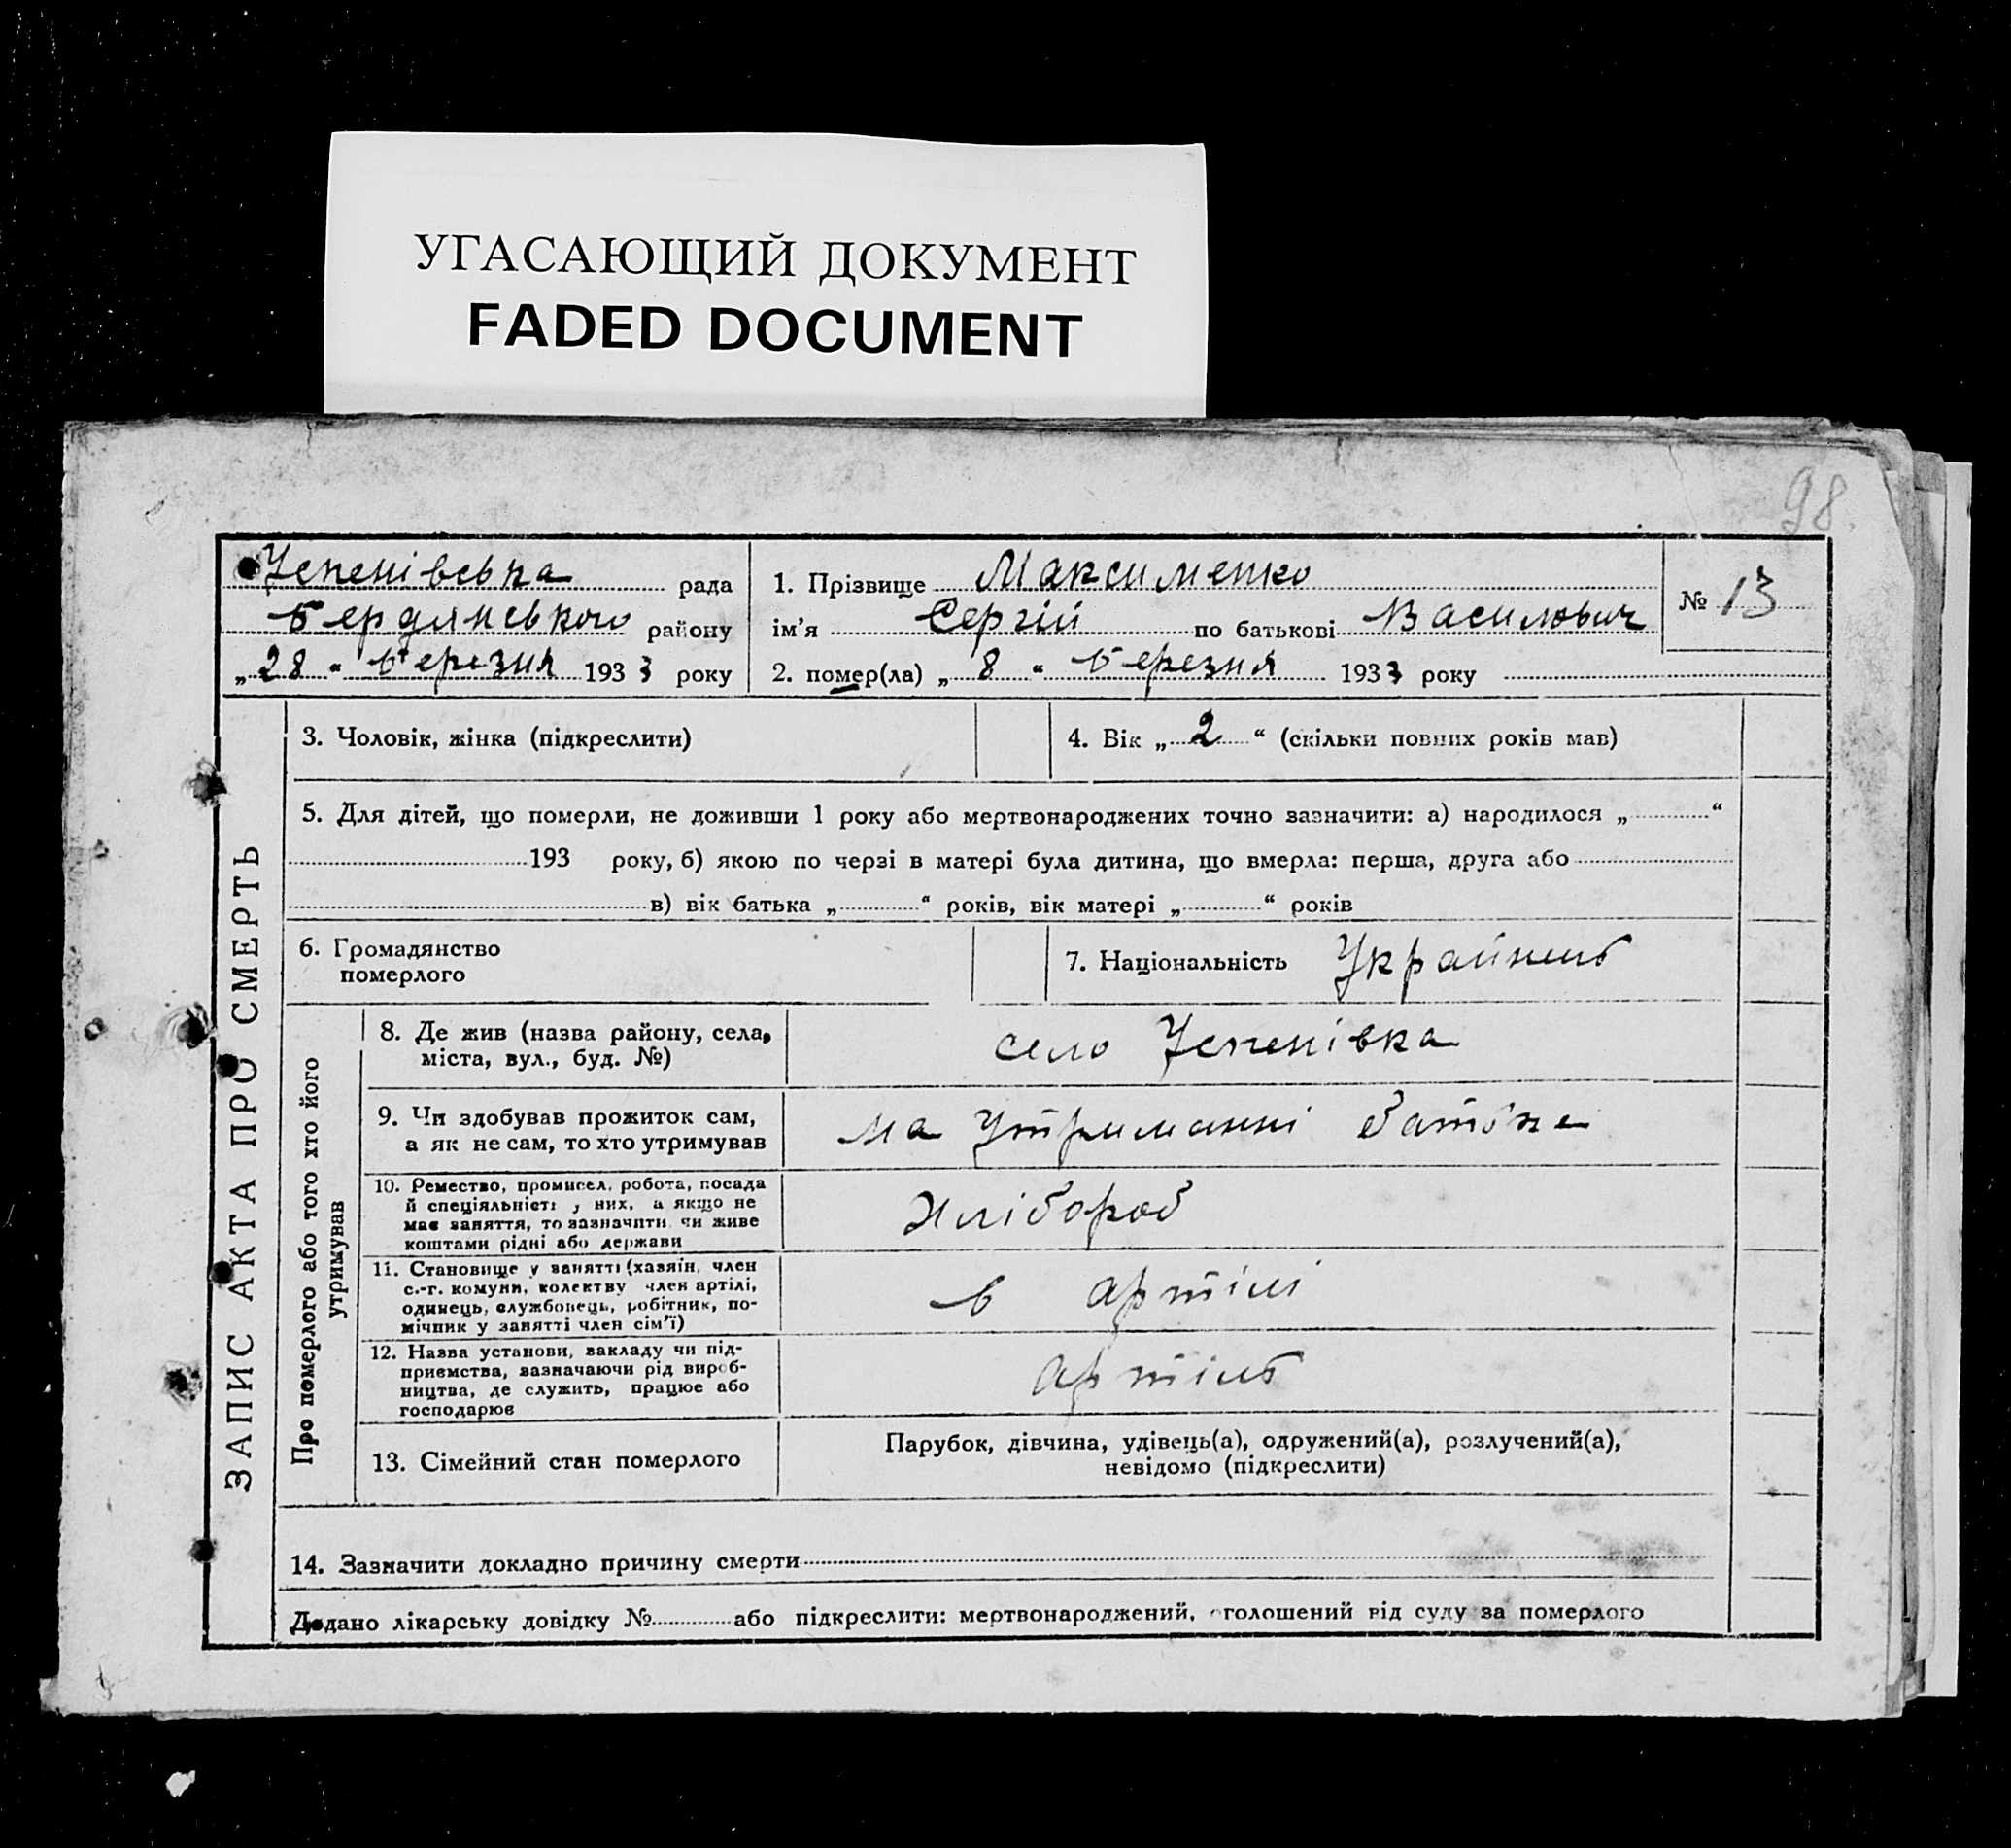 УГАСАЮЩИЙ ДОКУМЕНТ
FADED DOCUMENT
98.
Успенівська рада
Бердянського району
„28“ березня 1933 року
1. Прізвище Максименко
ім’я Сергій по батькові Василович
2. помер(ла) „8“ березня 1933 року
№ 13
ЗАПИС АКТА ПРО СМЕРТЬ
3. Чоловік, жінка (підкреслити)
4. Вік „2“ (скільки повних років мав)
5. Для дітей, що померли, не доживши 1 року або мертвонароджених точно зазначити: а) народилося „ “
193 року, б) якою по черзі в матері була дитина, що вмерла: перша, друга або
в) вік батька „ “ років, вік матері „ “ років
6. Громадянство
померлого
7. Національність Украйнець
Про померлого або того хто його
утримував
8. Де жив (назва району, села,
міста, вул., буд. №)
село Успенівка
9. Чи здобував прожиток сам,
а як не сам, то хто утримував
на утриманні
10. Ремество, промисел, робота, посада
й спеціяльність у них, а якщо не
має заняття, то зазначити чи живе
коштами рідні або держави
Хлібороб
11. Становище у занятті (хазяїн, член
с.-г. комуни, колектву член артілі,
одинець, службовець, робітник, по-
мічник у занятті член сім’ї)
в артілі
12. Назва установи, закладу чи під-
приємства, зазначаючи рід вироб-
ництва, де служить, працює або
господарює
артіль
13. Сімейний стан померлого
Парубок, дівчина, удівець(а), одружений(а), розлучений(а),
невідомо (підкреслити)
14. Зазначити докладно причину смерти
Додано лікарську довідку № або підкреслити: мертвонароджений, оголошений від суду за померлого